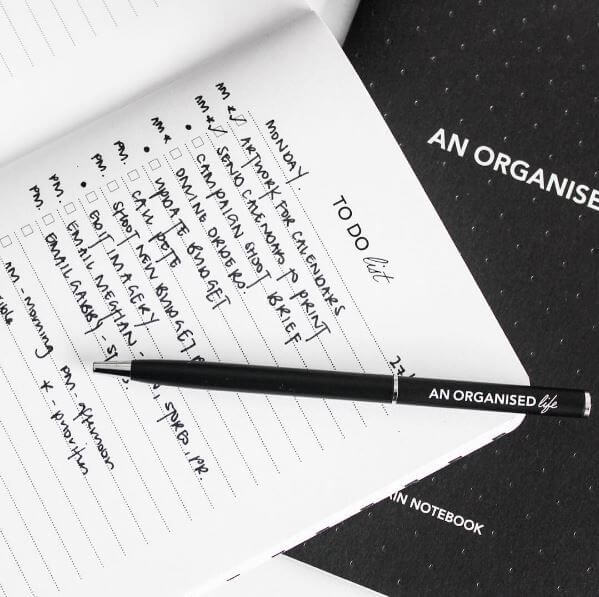 TO DO list
MONDAY.
AM * ARTWORK FOR CALENDARS
AM * SEND CALENDARS TO PRINT
• CAMPAIGN SHOOT BRIEF
AM * ONLINE ORDERS.
• UPDATE BUDGET
PM. CALL PETE
PM. SHOOT NEW BUDGET
• EDIT IMAGERY
PM. EMAIL MEGHAN - STORE, PR.
PM. EMAIL GABBY -
AM - morning PM - afternoon
* - priorities
AN ORGANISED life
AN ORGANISE
NOTEBOOK